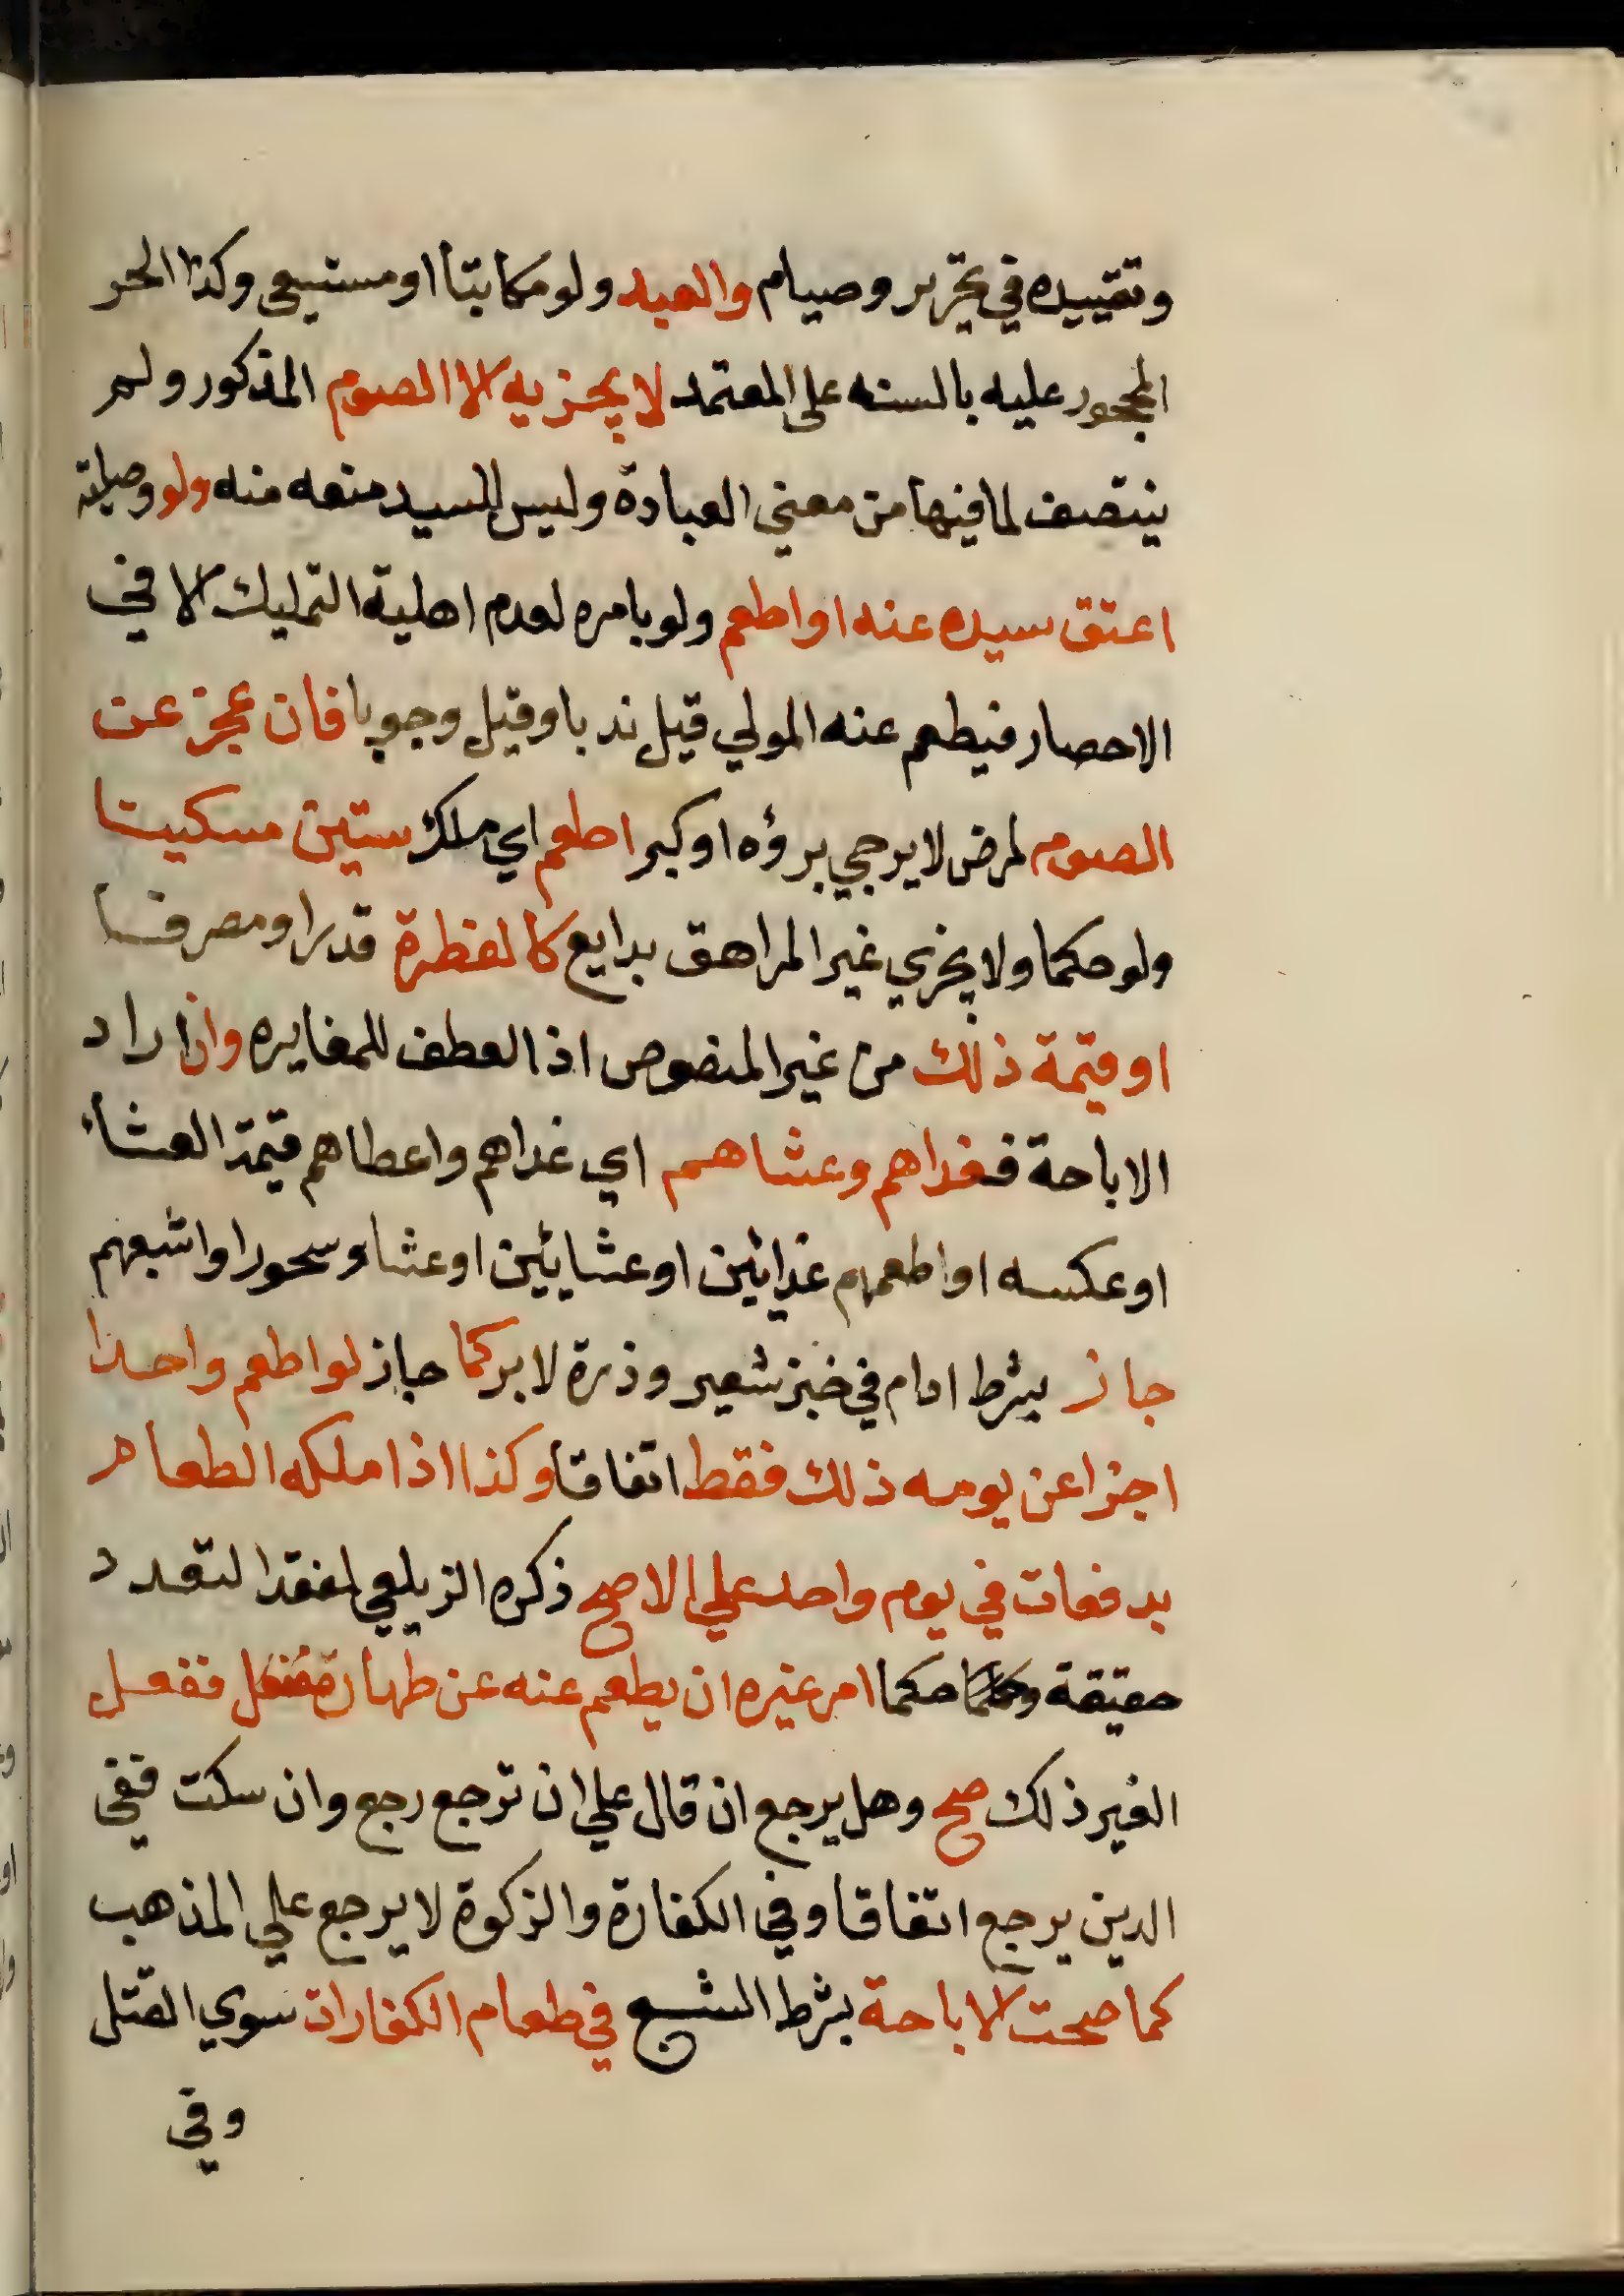 وتقييده في تحرير وصيام والعبد ولو مكاتبا او مستسعي وكذا الحر
المحجور عليه بالسفه على المعتمد لا يجزيه الا الصوم المذكور ولم
ينتصف لما فيها من معني العبادة وليس للسيد منعه منه ولو وصلية
اعتق سيده عنه او اطعم ولو بامره لعدم اهلية التمليك الا في
الاحصار فيطعم عنه المولي قيل ندبا وقيل وجوبا فان عجز عن
الصوم لمرض لا يرجي برؤه او كبر اطعم اي ملك ستين مسكينا
ولو حكما ولا يجزي غير المراهق بدايع كالفطرة قدرا ومصرفا
او قيمة ذلك من غير المنصوص اذ العطف للمغايره وان اراد
الاباحة فغداهم وعشاهم اي غداهم واعطاهم قيمة العشاء
او عكسه او اطعمهم غدائين او عشايئين او عشا وسحورا واشبعهم
جاز بشرط ادام في خبز شعير وذرة لا بر كما جاز لو اطعم واحدا
اجزا عن يومه ذلك فقط اتفاقا وكذا اذا ملكه الطعام
بدفعات في يوم واحد علي الاصح ذكره الزيلعي لفقد التعدد
حقيقة وحكما امر غيره ان يطعم عنه عن ظهاره ففعل
الغير ذلك صح وهل يرجع ان قال علي ان ترجع رجع وان سكت ففي
الدين يرجع اتفاقا وفي الكفارة والزكوة لا يرجع علي المذهب
كما صحت الاباحة بشرط الشبع في طعام الكفارات سوي القتل
وفي